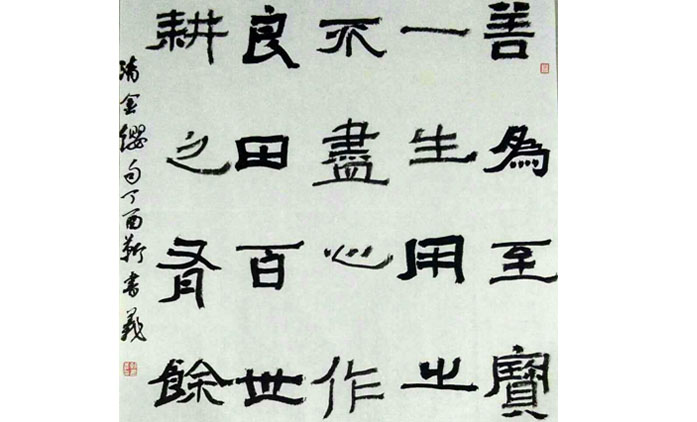 善為至寶
一生用之
不盡心作
良田百世
耕之有餘
清金纓句丁酉新書義